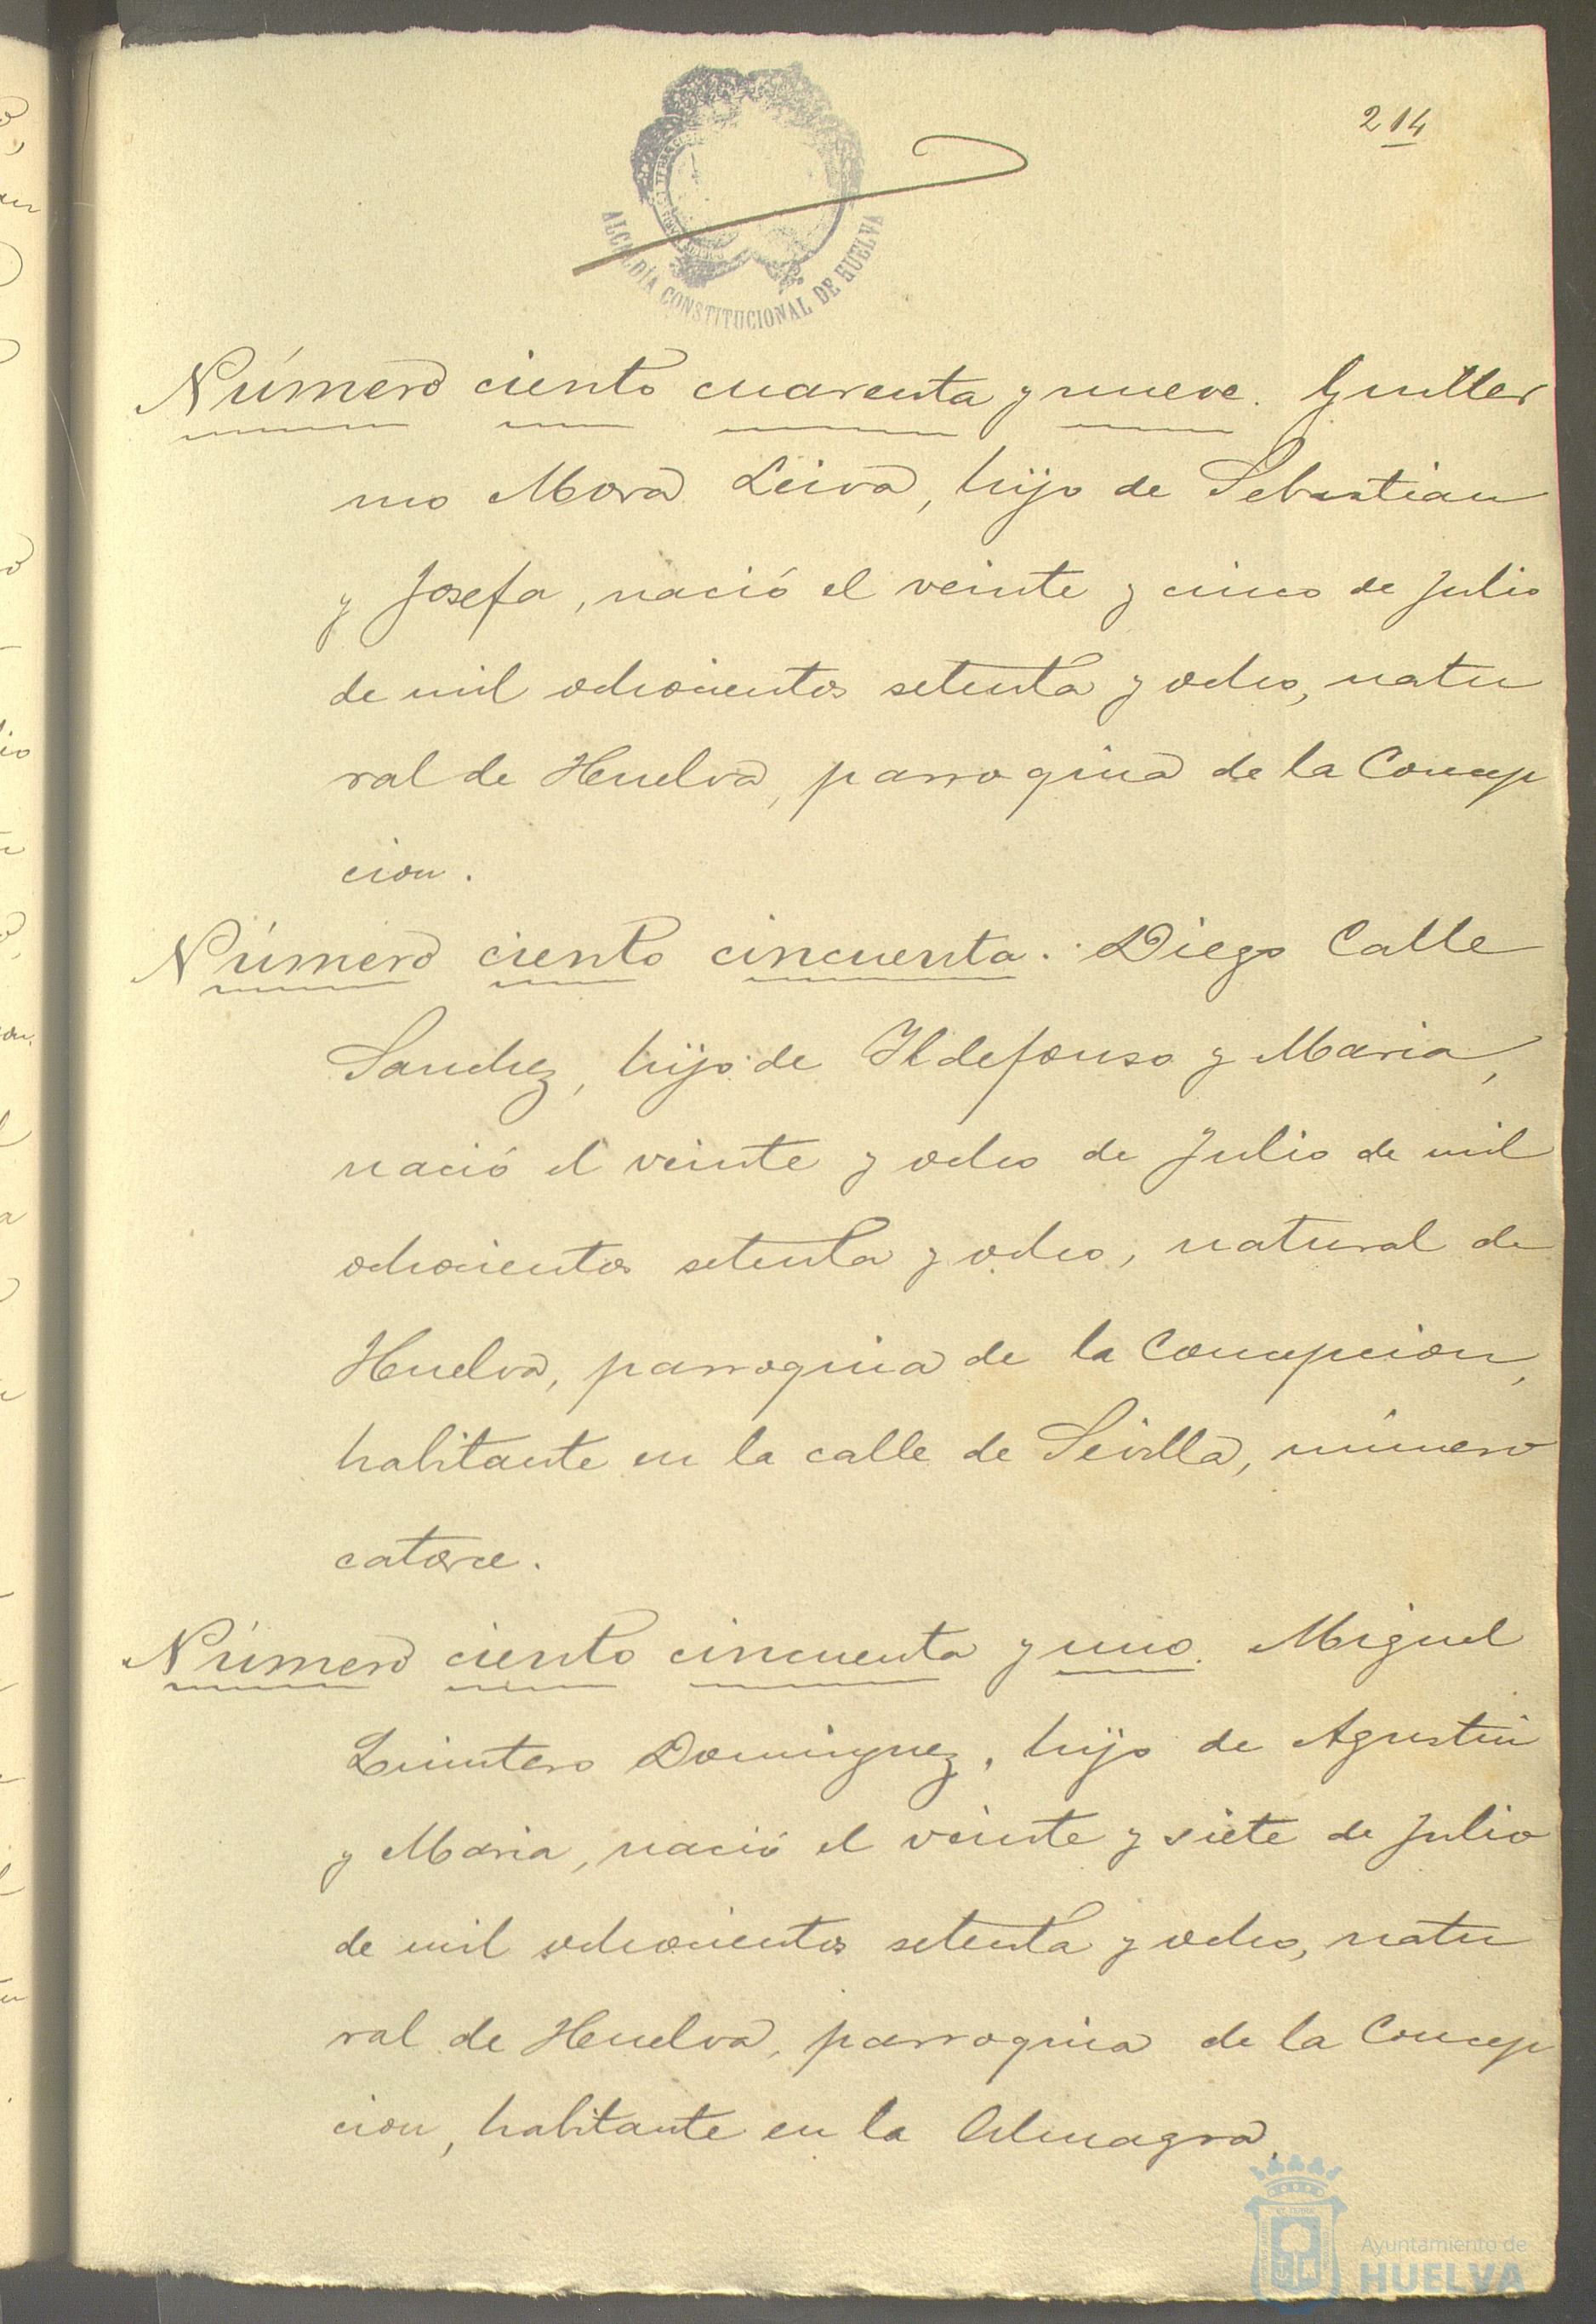 214
ALCALDÍA CONSTITUCIONAL DE HUELVA
Número ciento cuarenta y nueve. Guiller
mo Mora Leiva, hijo de Sebastian
y Josefa, nació el veinte y cinco de Julio
de mil ochocientos setenta y ocho, natu
ral de Huelva, parroquia de la Concep
cion.
Número ciento cincuenta. Diego Calle
Sanchez, hijo de Ildefonso y Maria,
nació el veinte y ocho de Julio de mil
ochocientos setenta y ocho, natural de
Huelva, parroquia de la Concepcion,
habitante en la calle de Sevilla, número
catorce.
Número ciento cincuenta y uno. Miguel
Quintero Dominguez, hijo de Agustin
y Maria, nació el veinte y siete de Julio
de mil ochocientos setenta y ocho, natu
ral de Huelva, parroquia de la Concep
cion, habitante en la Almagra.
Ayuntamiento de
HUELVA